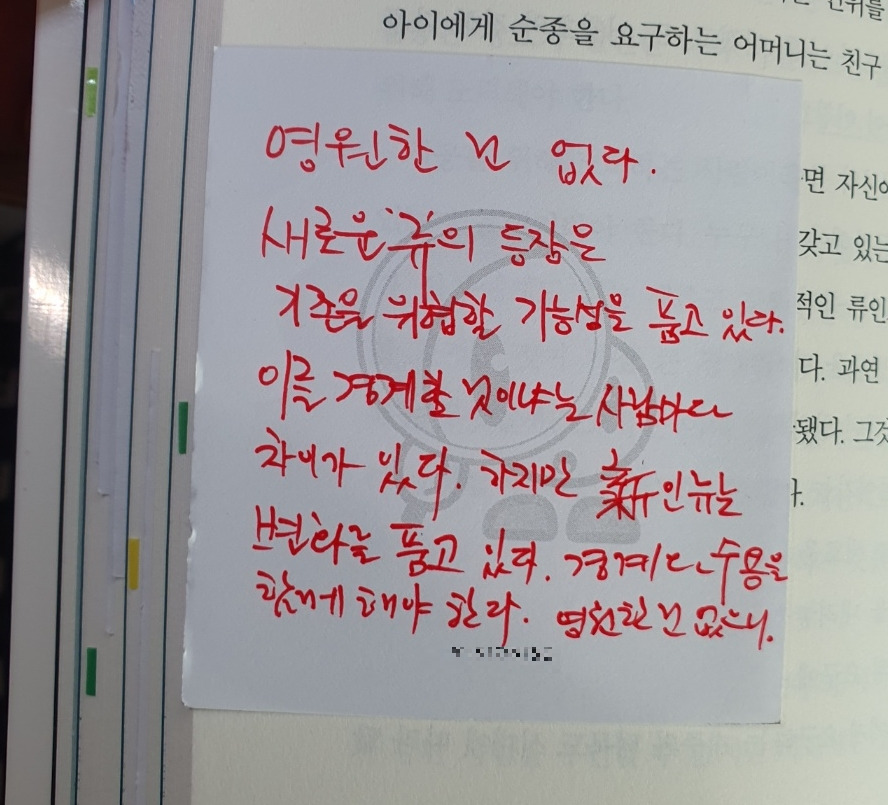 아이에게 순종을 요구하는 어머니는 친구
영원한 건 없다.
새로운 '류'의 등장은
면 자신이
갖고 있는
기존을 위협할 가능성을 품고 있다.
적인 류인
이를 경계할 것이냐는 사람마다
다. 과연
됐다. 그것
차이가 있다. 하지만 新인류는
다.
변화를 품고 있다. 경계와 수용을
함께 해야 한다. 영원한 건 없으니.